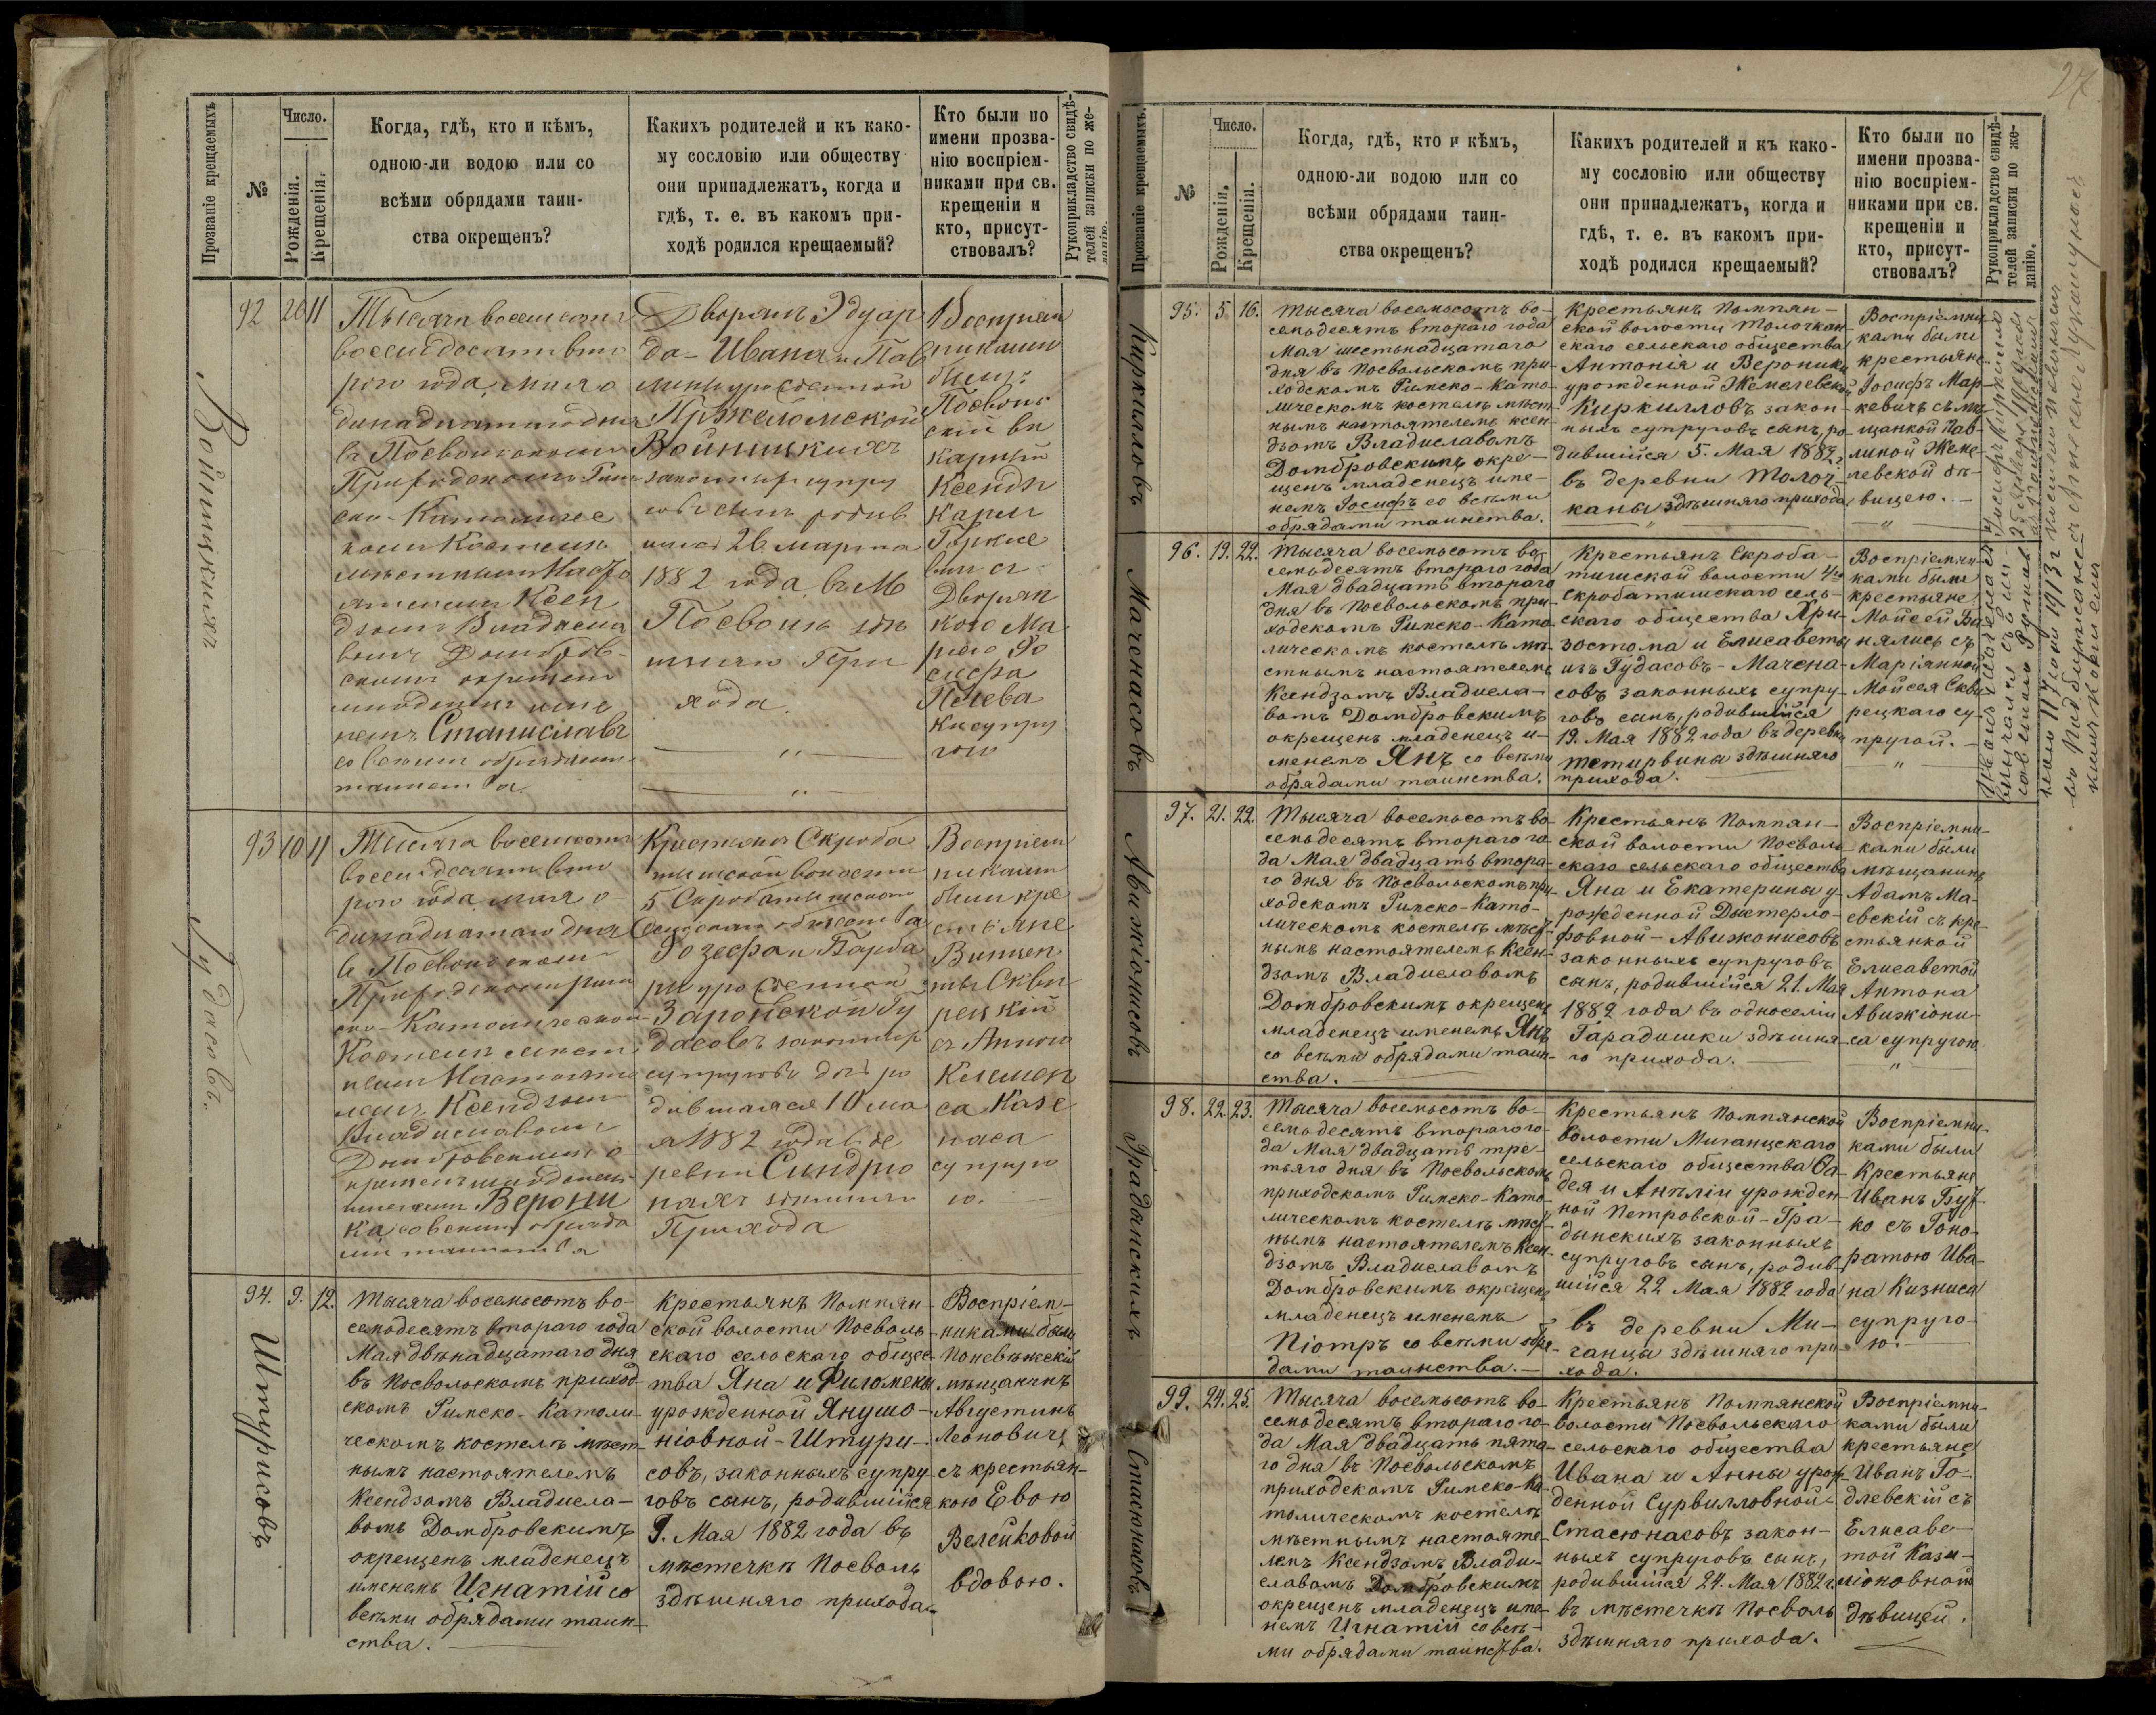 Прозваніе крещаемыхъ
№
Число.
Рожденія.
Крещенія.
Когда, гдѣ, кто и кѣмъ,
одною-ли водою или со
всѣми обрядами таин-
ства окрещенъ?
Какихъ родителей и къ како-
му сословію или обществу
они принадлежатъ, когда и
гдѣ, т. е. въ какомъ при-
ходѣ родился крещаемый?
Кто были по
имени прозва-
нію воспріем-
никами при св.
крещеніи и
кто, присут-
ствовалъ?
Рукоприкладство свидѣ-
телей записки по же-
ланію.
Войницкихъ
92 26 11
Тысяча восемьсотъ
восемьдесятъ вто
рого года, мая о
динадцатаго дня
въ Посвольскомъ
Приходскомъ Рим
ско-Католичес
комъ Костелѣ
мѣстнымъ Насто
ятелемъ Ксен
дзомъ Владисла
вомъ Домбров-
скимъ окрещенъ
младенецъ име
немъ Станиславъ
со всѣми обрядами
таинства.
Дворянъ Эдуар
да-Ивана и Пав
лины урожденной
Пржеломской
Войницкихъ
законныхъ супру
говъ сынъ родив
шійся 26 марта
1882 года въ М
Посволь здѣ
шняго При
хода.
Воспріем
никами
были:
Посволь
скій ви
карный
Ксендзъ
Карлъ
съ
Дворян
кою Ма
ріею Іо
сифа
супру
гою
Гудасовъ.
93 10 11
Тысяча восемьсотъ
восемьдесятъ вто
рого года, мая о
динадцатаго дня
въ Посвольскомъ
Приходскомъ Рим
ско-Католическомъ
Костелѣ мѣст
нымъ Настояте
лемъ Ксендзомъ
Владиславомъ
Домбровскимъ о
крещенъ младенецъ
именемъ Верони
ка со всѣми обряда
ми таинства
Крестьянъ Скроба
тишской волости
5 Скробатишскаго
Сельскаго общества
Іозефа и Варва
ры урожденной
Заронской Гу
дасовъ законныхъ
супруговъ дочь ро
дившаяся 10 ма
я 1882 года въ де
ревни Синдрю
нахъ здѣшняго
Прихода
Воспріем
никами
были кре
стьяне
Винцен
тій Скви
рецкій
съ Анною
Клемен
са Казе
наса
супруго
ю.
Штурисовъ
94. 9. 12.
Тысяча восемьсотъ во-
семьдесятъ втораго года
Мая двѣнадцатаго дня
въ Посвольскомъ приход-
скомъ Римско-Католи-
ческомъ костелѣ мѣст-
нымъ настоятелемъ
Ксендзомъ Владисла-
вомъ Домбровскимъ
окрещенъ младенецъ
именемъ Игнатій со
всѣми обрядами таин-
ства.
Крестьянъ Помпян-
ской волости Посволь-
скаго сельскаго общес-
тва Яна и Филомены
урожденной Янушо-
ніовной-Штури-
совъ, законныхъ супру-
говъ сынъ, родившійся
9. Мая 1882 года въ
мѣстечкѣ Посволь
здѣшняго прихода.
Воспріем-
никами были
Поневѣжскій
мѣщанинъ
Августинъ
Леоновичъ
съ крестьян-
кою Евою
Велейковой
вдовою.
27.
Прозваніе крещаемыхъ.
№
Число.
Рожденія.
Крещенія.
Когда, гдѣ, кто и кѣмъ,
одною-ли водою или со
всѣми обрядами таин-
ства окрещенъ?
Какихъ родителей и къ како-
му сословію или обществу
они принадлежатъ, когда и
гдѣ, т. е. въ какомъ при-
ходѣ родился крещаемый?
Кто были по
имени прозва-
нію воспріем-
никами при св.
крещеніи и
кто, присут-
ствовалъ?
Рукоприкладство свидѣ-
телей записки по же-
ланію.
Киркилловъ
95. 5. 16.
Тысяча восемьсотъ во-
семьдесятъ втораго года
Мая шестьнадцатаго
дня въ Посвольскомъ при-
ходскомъ Римско-Като-
лическомъ костелѣ мѣст-
нымъ настоятелемъ ксен-
дзомъ Владиславомъ
Домбровскимъ окре-
щенъ младенецъ име-
немъ Іосифъ со всѣми
обрядами таинства.
Крестьянъ Помпян-
ской волости Толочкан-
скаго сельскаго общества
Антонія и Вероники
урожденной Жемелевской
Киркилловъ закон-
ныхъ супруговъ сынъ, ро-
дившійся 5. Мая 1882 г.
въ деревни Толоч-
каны здѣшняго прихода
Воспріемни-
ками были
крестьяне
Іосифъ Мар-
кевичъ съ мѣ-
щанкой Пав-
линой Жеме-
левской дѣ-
вицею.
Маченасовъ
96. 19. 22.
Тысяча восемьсотъ во-
семьдесятъ втораго года
Мая двадцать втораго
дня въ Посвольскомъ при-
ходскомъ Римско-Като-
лическомъ костелѣ мѣ-
стнымъ настоятелемъ
Ксендзомъ Владисла-
вомъ Домбровскимъ
окрещенъ младенецъ и-
менемъ Янъ со всѣми
обрядами таинства.
Крестьянъ Скроба-
тишской волости 4го
Скробатишскаго сель-
скаго общества Хри-
зостома и Елисаветы
изъ Гудасовъ-Мачена-
совъ законныхъ супру-
говъ сынъ, родившійся
19. Мая 1882 года въ деревни
Тетирвина здѣшняго
прихода.
Воспріемни-
ками были
крестьяне
Мойсей Ви-
нялисъ съ
Маріанной
Мойсея Скви-
рецкаго су-
пругой.
Авижіонисовъ
97. 21. 22.
Тысяча восемьсотъ во-
семьдесятъ втораго го-
да Мая двадцать втора-
го дня въ Посвольскомъ при-
ходскомъ Римско-Като-
лическомъ костелѣ мѣст-
нымъ настоятелемъ Ксен-
дзомъ Владиславомъ
Домбровскимъ окрещенъ
младенецъ именемъ Янъ
со всѣми обрядами таин-
ства.
Крестьянъ Помпян-
ской волости Посволь-
скаго сельскаго общества
Яна и Екатерины у-
рожденной Дыктерло-
фовной-Авижонисовъ
законныхъ супруговъ
сынъ, родившійся 21. Мая
1882 года въ односеліи
Гарадишки здѣшня-
го прихода.
Воспріемни-
ками были
мѣщанинъ
Адамъ Ма-
евскій съ кре-
стьянкой
Елисаветой
Антона
Авижіони-
са супругою.
Граданскихъ
98. 22. 23.
Тысяча восемьсотъ во-
семьдесятъ втораго го-
да Мая двадцать тре-
тьяго дня въ Посвольскомъ
приходскомъ Римско-Като-
лическомъ костелѣ мѣст-
нымъ настоятелемъ Ксен-
дзомъ Владиславомъ
Домбровскимъ окрещенъ
младенецъ именемъ
Піотръ со всѣми обря-
дами таинства.
Крестьянъ Помпянской
волости Миганцскаго
сельскаго общества Фа-
дея и Анѣліи урожден-
ной Петровской-Гра-
данскихъ законныхъ
супруговъ сынъ, родив-
шійся 22 Мая 1882 года
въ деревни Ми-
ганцы здѣшняго при-
хода.
Воспріемни-
ками были
Крестьяне
Иванъ Буй-
ко съ Гоно-
ратою Ива-
на Кизниса
супруго-
ю.
Стасюнасовъ
99. 24. 25.
Тысяча восемьсотъ во-
семьдесятъ втораго го-
да Мая двадцать пята-
го дня въ Посвольскомъ
приходскомъ Римско-Ка-
толическомъ костелѣ
мѣстнымъ настояте-
лемъ Ксендзомъ Влади-
славомъ Домбровскимъ
окрещенъ младенецъ име-
немъ Игнатій со всѣ-
ми обрядами таинства.
Крестьянъ Помпянской
волости Посвольскаго
сельскаго общества
Ивана и Анны урож-
денной Сурвилловной-
Стасюнасовъ закон-
ныхъ супруговъ сынъ,
родившійся 24. Мая 1882 г.
въ мѣстечкѣ Посволь
здѣшняго прихода.
Воспріемни-
ками были
крестьяне
Иванъ Го-
длевскій съ
Елисаве-
той Кази-
міоновной
дѣвицей.